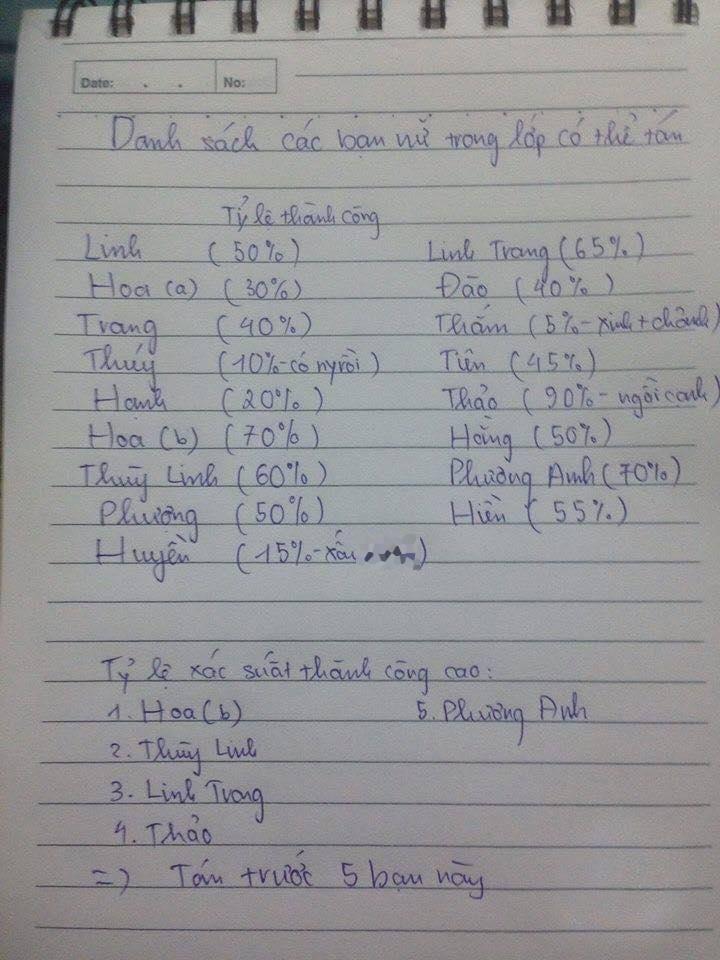 Date: . . No:
Danh sách các bạn nữ trong lớp có thể tán
Tỷ lệ thành công
Linh (50%) Linh Trang (65%)
Hoa (a) (30%) Đào (40%)
Trang (40%) Thắm (5%-xinh+chảnh)
Thúy (10%-có ny rồi) Tiên (45%)
Hạnh (20%) Thảo (90%-ngồi cạnh)
Hoa (b) (70%) Hằng (50%)
Thùy Linh (60%) Phương Anh (70%)
Phương (50%) Hiền (55%)
Huyền (15%-xấu )
Tỷ lệ xác suất thành công cao:
1. Hoa (b) 5. Phương Anh
2. Thùy Linh
3. Linh Trang
4. Thảo
=) Tán trước 5 bạn này